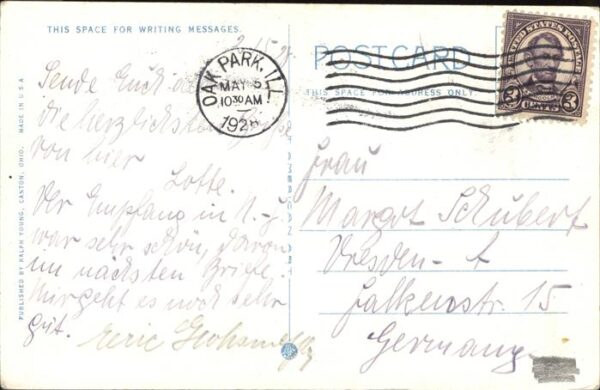 THIS SPACE FOR WRITING MESSAGES.
POST CARD
THIS SPACE FOR ADDRESS ONLY.
UNITED STATES POSTAGE
3 CENTS 3
OAK PARK, ILL.
MAY 5
10 30 AM
192
MADE IN U S A
PUBLISHED BY RALPH YOUNG, CANTON, OHIO.
Sende Euch
die herzlichsten
von hier
Lotte.
Der Empfang in N.-J.
war sehr schön, davon
im nächsten Briefe.
Mir geht es noch sehr
gut.
Frau
Margot Schubert
Dresden-
Falkenstr. 15
Germany